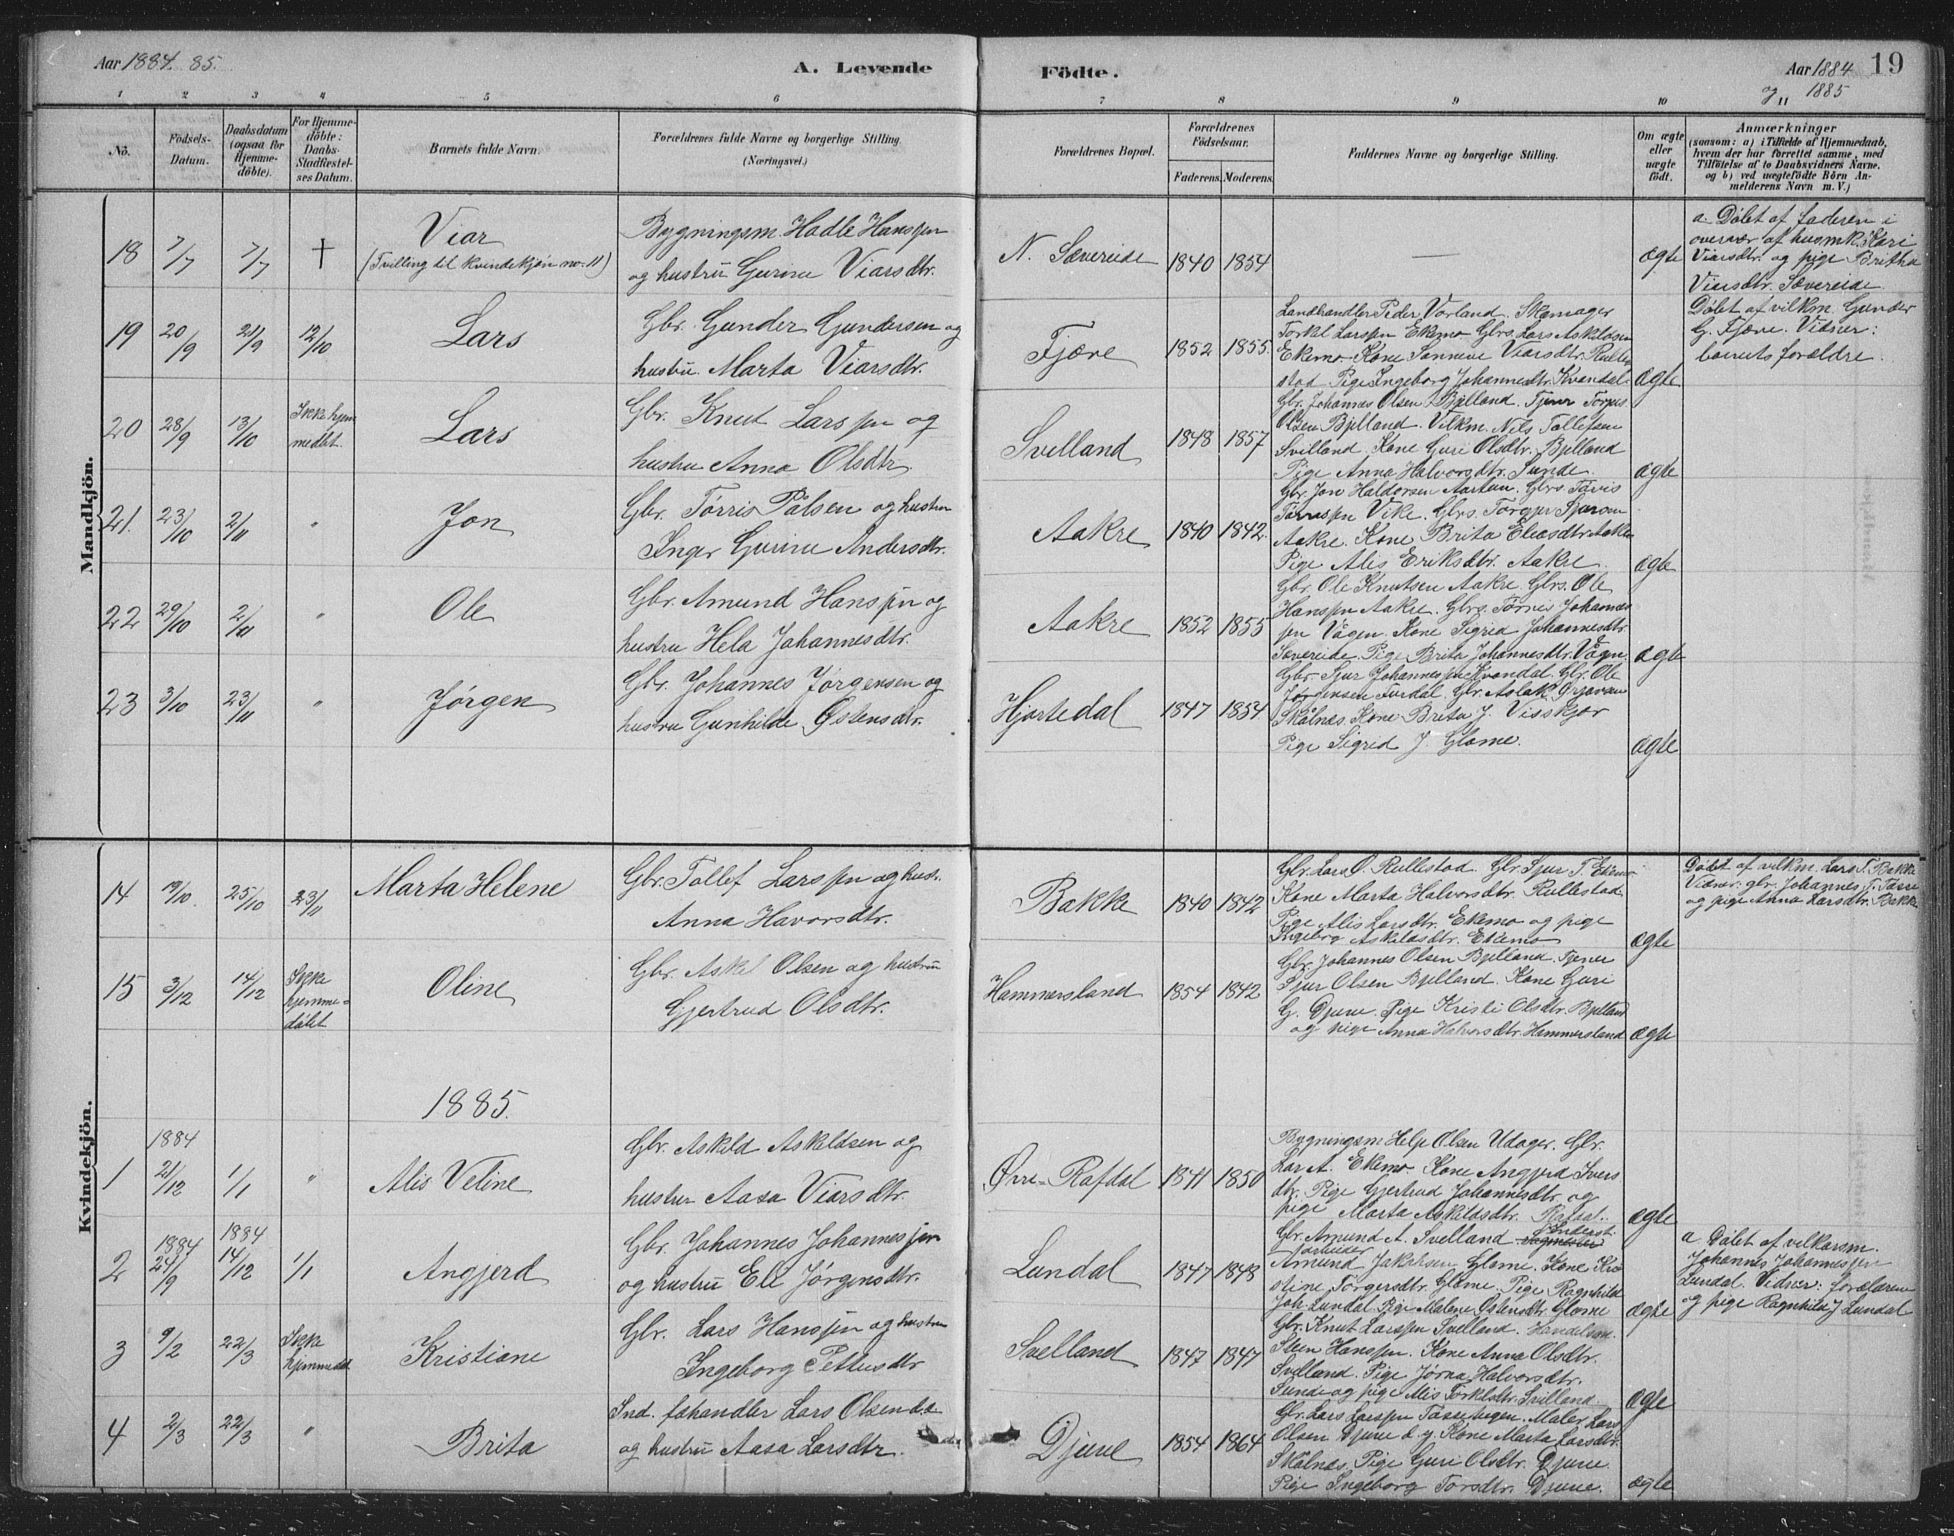 Aar 1884. 85.
A. Levende
Födte.
Aar 1884
19
og 1885
1 2 3 4 5 6 7 8 9 10 11
No.
Födsels-Datum.
Daabsdatum (ogsaa for Hjemme-döbte).
For Hjemme-döbte: Daabs-Stadfæstel-ses Datum.
Barnets fulde Navn.
Forældrenes fulde Navne og borgerlige Stilling. (Næringsvei.)
Forældrenes Bopæl.
Forældrenes Födselsaar.
Faderens. Moderens.
Faddernes Navne og borgerlige Stilling.
Om ægte eller uægte født.
Anmærkninger
(saasom: a) i Tilfælde af Hjemmedaab,
hvem der har forrettet samme, med
Tilföielse af to Daabsvidners Navne,
og b) ved uægtefödte Börn An-
melderens Navn m. V.)
Mandkjön.
18 7/7 7/7 †
Viar
(Tvilling til kvindekjön no. 11)
Bygningsm. Hadle Hanssen
og hustru Gurine Viarsdtr.
N. Sævereide 1840 1854 — ægte
a. Döbt af faderen i
overvær af husmk. Kari
Viarsdtr. og pige Britha
Viarsdtr. Sævereide.
19 20/9 21/9 12/10
Lars
Gbr. Gunder Gundersen og
hustru Marta Viarsdtr.
Fjære 1852 1855
Landhandler Peder Vorland. Skomager
Torkel Larssen Ekemo Gbrs. Lars Askildsen
Ekemo. Kone Sønneve Viarsdtr. Rulle-
stad. Pige Ingeborg Johannesdtr. Kvandal.
ægte
Döbt af vilkm. Gunder
G. Fjære. Vidner:
barnets forældre.
20 28/9 13/10
Ikke hjem
medöbt.
Lars
Gbr. Knut Larssen og
hustru Anna Olsdtr.
Svelland 1848 1857
Gbr. Johannes Olsen Bjelland. Tjener Torris
Olsen Bjelland. Vilkm. Nils Tollefsen
Svelland. Kone Guri Olsdtr. Bjelland
Pige Anna Halvorsdtr. Sunde.
ægte
21. 23/10 2/11 "
Jon
Gbr. Tørris Pålsen og hustru
Inger Gurine Andersdtr.
Aakre 1840 1842.
Gbr. Jon Haldorsen Aartun. Gbrs. Tørris
Tørressen Vike. Gbrs. Torger Sjursen
Aakre. Kone Brita Eliasdtr. Aakre
Pige Alis Eriksdtr. Aakre.
ægte
22 29/10 2/11 "
Ole
Gbr. Amund Hanssen og
hustru Hela Johannesdtr.
Aakre 1852 1855
Gbr. Ole Knutsen Aakre. Gbrs. Ole
Hanssen Aakre. Gbrs. Tørris Johannes
sen Vågen. Kone Sigrid Johannesdtr
Sævereide. Pige Brita Johannesdtr. Vågen.
ægte
23 3/10 23/11 "
Jørgen
Gbr. Johannes Jørgensen og
hustru Gunhilde Østensdtr.
Hjortedal 1847 1854
Gbr. Sjur Johannessen Kvandal. Gbr. Ole
Jørgensen Furdal. Gbr. Aslak
Skålnes. Kone Brita J. Visskjør
Pige Sigrid J. Glome.
ægte
Kvindekjön.
14 19/10. 25/10 23/11
Marta Helene
Gbr. Tollef Larssen og hust.
Anna Havorsdtr.
Bakke 1840 1842
Gbr. Lars O. Rullestad. Gbr. Sjur T. Ekemo
Kone Marta Halvorsdtr. Rullestad
Pige Alis Larsdtr. Ekemo og pige
Ingeborg Askildsdtr. Ekemo
ægte
Döbt af vilkm. Lars T. Bakke
Vidner: gbr. Johannes J. Tasse
og pige Anna Larsdtr. Bakke
15 3/12 14/12
Ikke
hjemme-
döbt
Oline
Gbr. Askel Olsen og hustru
Gjertrud Olsdtr.
Hammersland 1854 1842
Gbr. Johannes Olsen Bjelland. Tjener
Sjur Olsen Bjelland. Kone Guri
G. Djune. Pige Kristi Olsdtr. Bjelland
og pige Anna Halvorsdtr. Hammersland
ægte
1885.
1884
1 21/12 1/1 "
Alis Veline
Gbr. Askild Askildsen og
hustru Aasa Viarsdtr.
Øvre-Rafdal 1841 1850
Bygningsm Helje Olsen Udager. Gbr.
Lars A. Ekemo. Kone Angjerd Ivers
dtr. Pige Gjertrud Johannesdtr. og
pige Marta Askildsdtr. Rafdal.
ægte
1884 1884
2 24/9 14/12 1/1
Angjerd
Gbr. Johannes Johannessen
og hustru Eli Jørgensdtr.
Lundal 1847 1848
Gbr. Amund A. Svelland
arbeider
Amund Jakobsen Glome. Kone Kri
stine Torgersdtr. Glome. Pige Ragnhild
Joh. Lundal. Pige Malene Østensdtr. Glome
ægte
a. Döbt af vilkarsm.
Johannes Johannessen
Lundal. Vidner: forældrene
og pige Ragnhild J. Lundal
3 9/2 22/3
Ikke
hjemmedöbt
Kristiane
Gbr. Lars Hanssen og hustru
Ingeborg Pettersdtr
Svelland 1847 1847
Gbr. Knut Larssen Svelland. Handelsm.
Steen Hanssen. Kone Anna Olsdtr.
Svelland. Pige Jørna Halvorsdtr.
Sunde og pige Alis Torkelsdtr. Svelland
ægte
4 2/3 22/3 "
Brita
Ind. fæhandler Lars Olsen d.e
og hustru Aasa Larsdtr.
Djune 1854 1864
Gbr. Lars Larssen Tassehagen. Maler Lars
Olsen Djune d. y. Kone Marta Larsdtr.
Skålnes. Pige Guri Olsdtr. Djune
Pige Ingeborg Torsdtr. Djune.
ægte